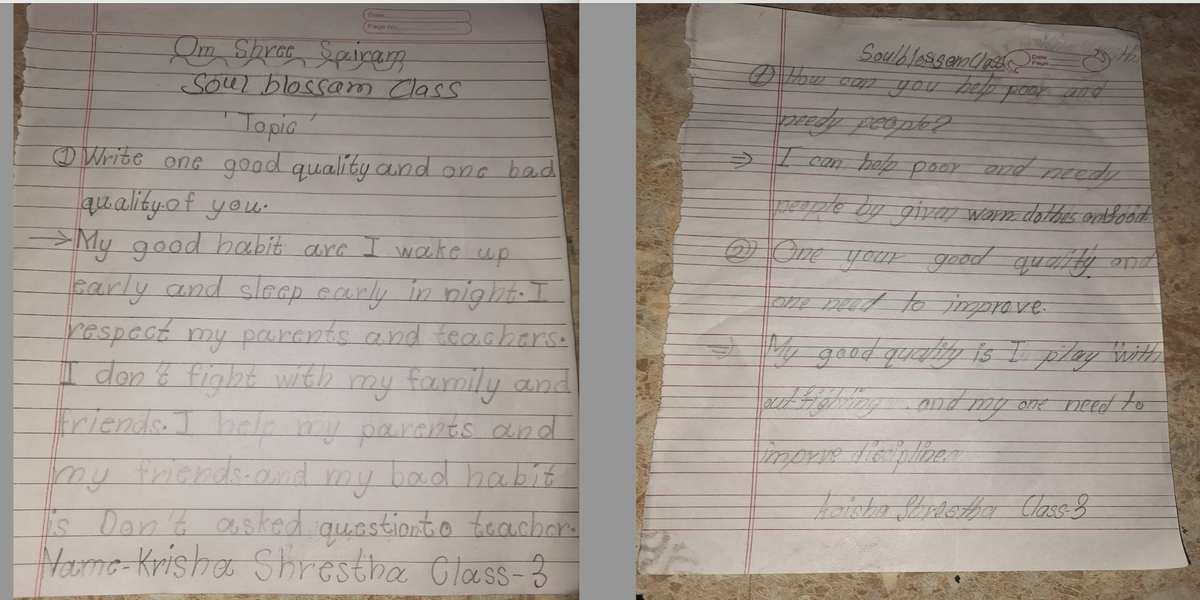 Date
Page No.
Om Shree Sairam
Soul blossam Class
'Topic'
① Write one good quality and one bad
quality of you.
→ My good habit are I wake up
early and sleep early in night. I
respect my parents and teachers.
I don't fight with my family and
friends. I help my parents and
my friends. and my bad habit
is Don't asked question to teacher.
Name - Krisha Shrestha Class - 3
Soulblossam Class
Date
Page
① How can you help poor and
needy people?
⇒ I can help poor and needy
people by given warm clothes and food
② One your good quality and
one need to improve.
⇒ My good quality is I play with
out fighting and my one need to
imprve discipline
Shrestha Class-3